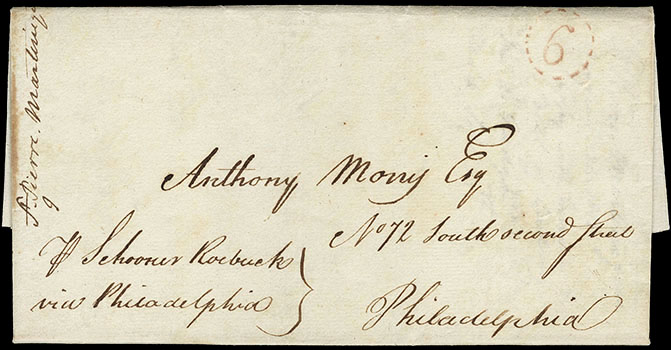 6
Anthony Morris Esq
No 72 South second Street
Philadelphia
⅌ Schooner Roebuck
via Philadelphia
St Pierre. Martiniq
9